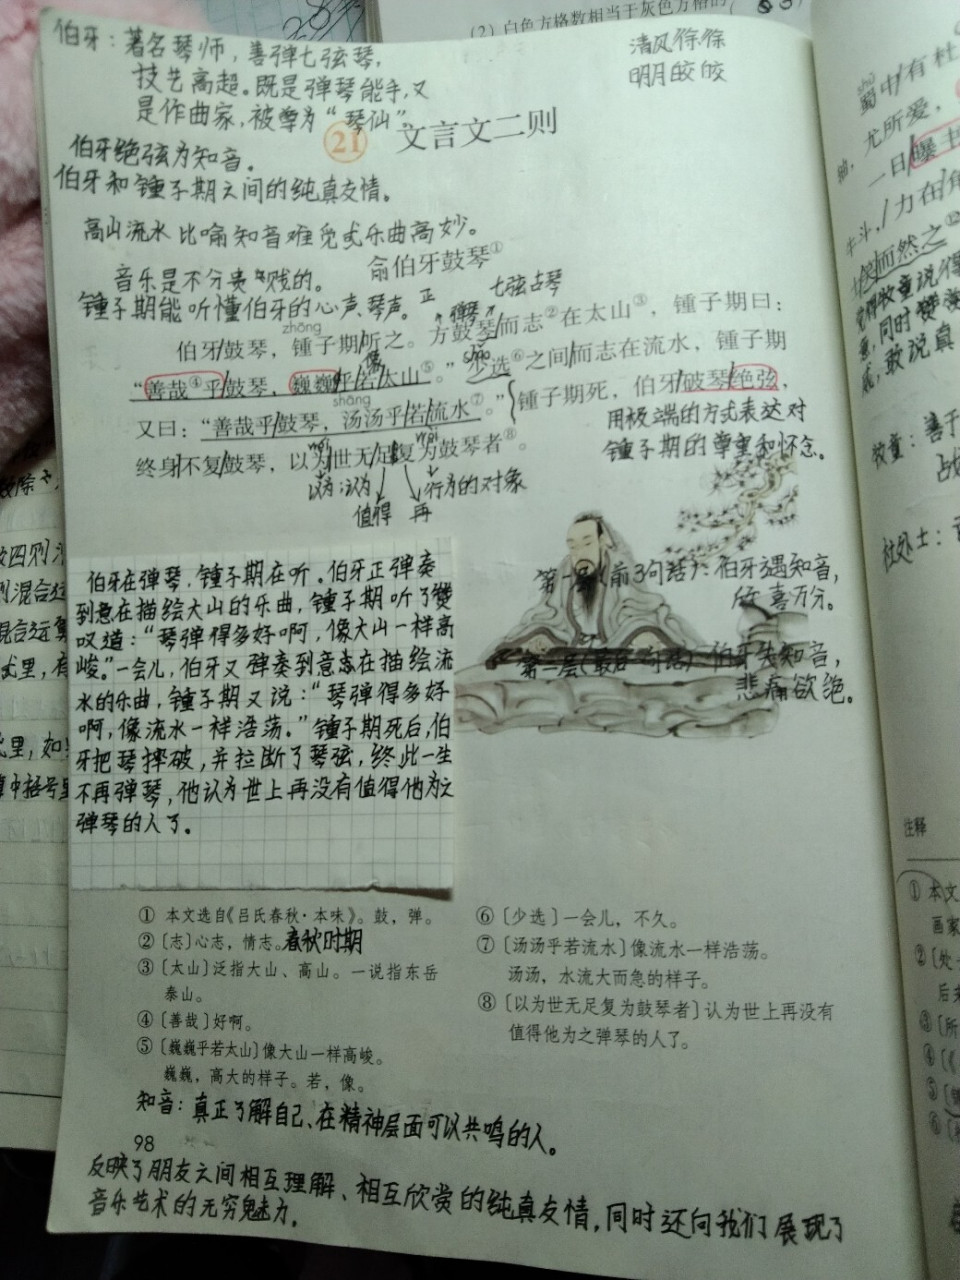 (2) 白色方格数相当于灰色方格的(
伯牙：著名琴师，善弹七弦琴，
技艺高超。既是弹琴能手，又
是作曲家，被尊为“琴仙”。
清风徐徐
明月皎皎
21 文言文二则
伯牙绝弦为知音。
伯牙和锺子期之间的纯真友情。
高山流水比喻知音难觅或乐曲高妙。
俞伯牙鼓琴①
音乐是不分贵贱的。
锺子期能听懂伯牙的心声、琴声。
正
弹琴
七弦古琴
zhōng
伯牙/鼓琴，锺子期/听之。方鼓琴/而志②在太山③，锺子期曰：
像
“善哉④乎/鼓琴，巍巍/乎/若/太山⑤。”少选⑥之间/而志在流水，锺子期
shāng
又曰：“善哉乎/鼓琴，汤汤乎/若/流水⑦。”锺子期死，伯牙/破琴/绝弦，
终身/不复/鼓琴，以为/世无/足/复/为鼓琴者⑧。
用极端的方式表达对
锺子期的尊重和怀念。
以为：认为
值得
再
行为的对象
伯牙在弹琴，锺子期在听。伯牙正弹奏
到意在描绘大山的乐曲，锺子期听了赞
叹道：“琴弹得多好啊，像大山一样高
峻。”一会儿，伯牙又弹奏到意志在描绘流
水的乐曲，锺子期又说：“琴弹得多好
啊，像流水一样浩荡。”锺子期死后，伯
牙把琴摔破，并拉断了琴弦，终此一生
不再弹琴，他认为世上再没有值得他为之
弹琴的人了。
第一层（前3句话）：伯牙遇知音，
欣喜万分。
第二层（最后一句话）伯牙失知音，
悲痛欲绝。
① 本文选自《吕氏春秋·本味》。鼓，弹。
② 〔志〕心志，情志。春秋时期
③ 〔太山〕泛指大山、高山。一说指东岳
泰山。
④ 〔善哉〕好啊。
⑤ 〔巍巍乎若太山〕像大山一样高峻。
巍巍，高大的样子。若，像。
⑥ 〔少选〕一会儿，不久。
⑦ 〔汤汤乎若流水〕像流水一样浩荡。
汤汤，水流大而急的样子。
⑧ 〔以为世无足复为鼓琴者〕认为世上再没有
值得他为之弹琴的人了。
知音：真正了解自己、在精神层面可以共鸣的人。
98
反映了朋友之间相互理解、相互欣赏的纯真友情，同时还向我们展现了
音乐艺术的无穷魅力。
shǔ
蜀中/有杜
尤所爱，
一日/曝书
力在角
而然之
牧童：善于
杜处士：
注释
① 本文
画家